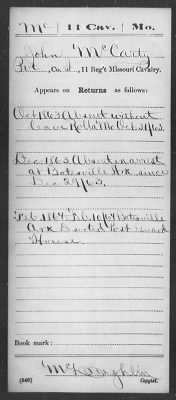 Mc | 11 Cav. | Mo.
John McCarty
Pvt., Co. , 11 Reg't Missouri Cavalry.
Appears on Returns as follows:
Oct 1863 Absent without
leave Rolla Mo Oct 31/63.
Dec 1863 Absent in arrest
at Batesville Ark since
Dec 29/63.
Feb. 1864 Feb. 10/64 Batesville
Ark Deserted Post Guard
House.
Book mark:
McLaughlin
(546) Copyist.